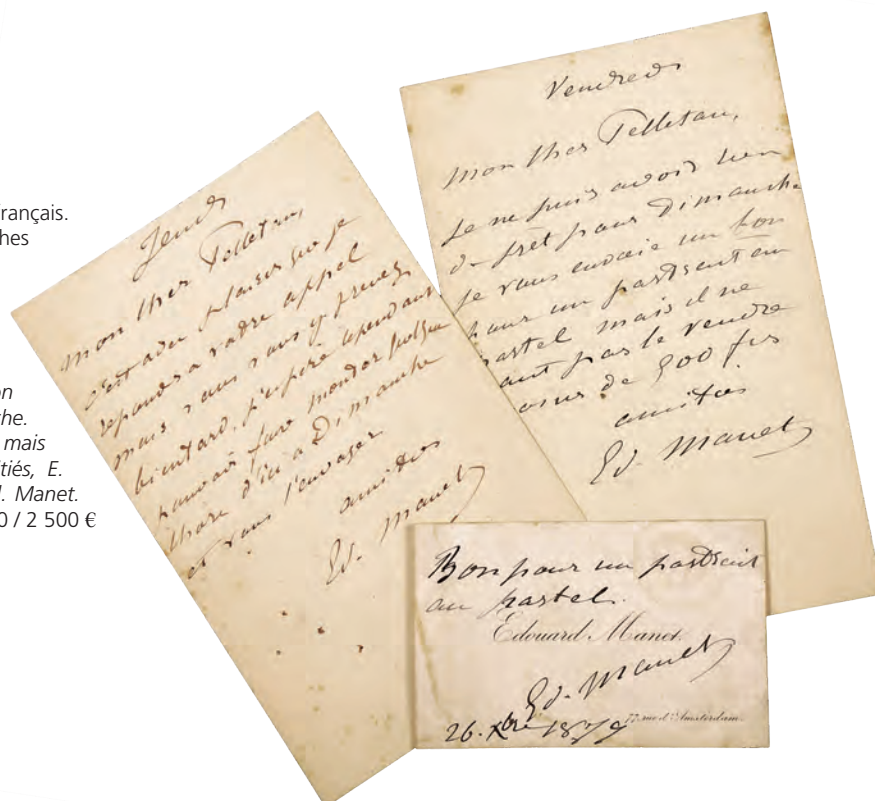 rançais.
hes
on
he.
mais
tiés, E.
l. Manet.
0 / 2 500 €
Jeudi
Mon cher Pelletan,
C'est avec plaisir que je
répondrai à votre appel
mais vous vous y prenez
bien tard. j'espère cependant
pouvoir faire monder quelque
chose d'ici à Dimanche
et vous l'envoyer
amitiés
Ed. Manet
Vendredi
Mon cher Pelletan,
Je ne puis avoir rien
de prêt pour Dimanche
je vous envoie un bon
pour un portrait au
pastel mais il ne
faut pas le vendre
moins de 500 frs
amitiés
Ed. Manet
Bon pour un portrait
au pastel.
Edouard Manet.
Ed. Manet
26. Xbre 1879
77, rue d'Amsterdam.